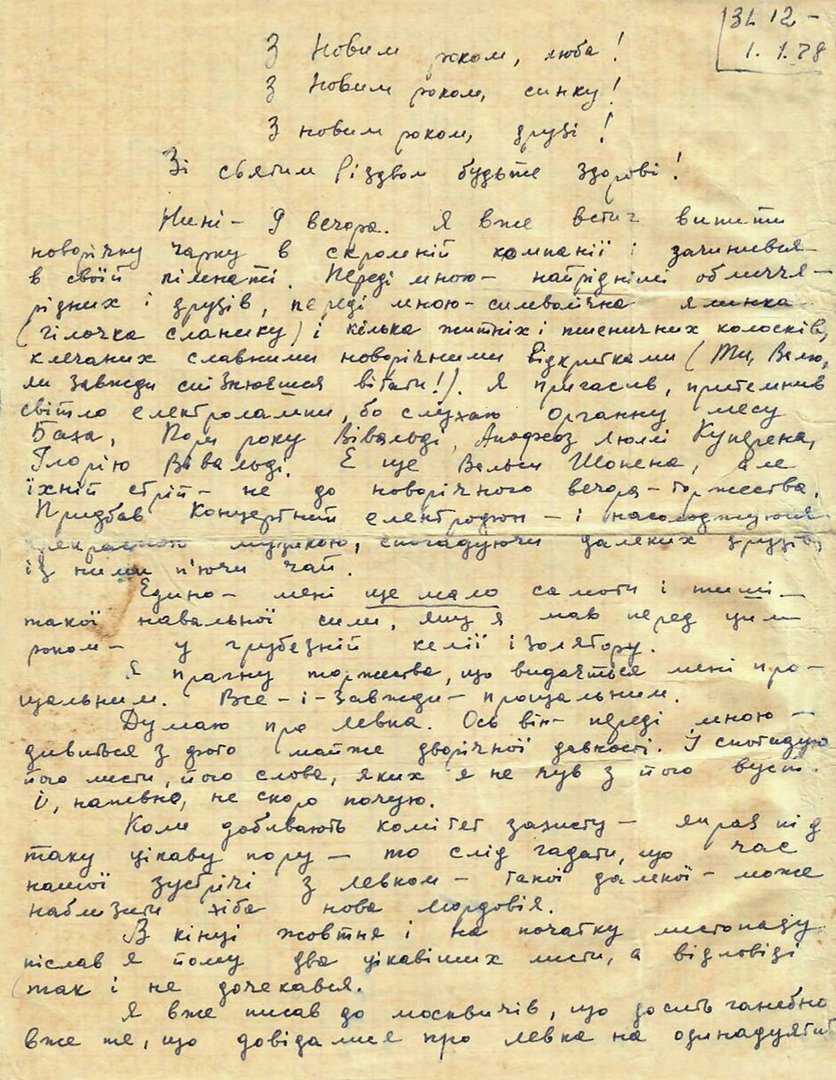 31. 12 –
1. 1. 78
З Новим роком, люба!
З Новим роком, синку!
З новим роком, друзі!
Зі святим Різдвом будьте здорові!
Нині – 9 вечора. Я вже встиг випити
новорічну чарку в скромній компанії і зачинився
в своїй кімнаті. Переді мною – найрідніші обличчя –
рідних і друзів, переді мною – символічна ялинка
(гілочка сланику) і кілька житніх і пшеничних колосків,
клечаних славними новорічними відкритками (Ти, Валю,
ти завжди спізнюєшся вітати!). Я пригасив, притемнив
світло електролампи, бо слухаю органну месу
Баха, Пори року Вівальді, Апофеоз Люллі Куперена,
Глорію Вівальді. Є ще Вальси Шопена, але
їхній стрій – не до новорічного вечора – торжества.
Придбав Концертний електрофон – і насолоджуюся
прекрасною музикою, спогадуючи далеких друзів,
із ними п'ючи чай.
Едино – мені ще мало самоти і тиші –
такої навальної сили, яку я мав перед цим
роком – у грубезній келії ізолятору.
Я прагну торжества, що видається мені про-
щальним. Все – і – завжди – прощальним.
Думаю про Левка. Ось він – переді мною –
дивиться з фото майже дворічної давності. І спогадую
його листи, його слова, яких я не чув з його вуст.
І, напевне, не скоро почую.
Коли добивають комітет захисту – якраз під
таку цікаву пору – то слід гадати, що час
нашої зустрічі з Левком – такої далекої – може
наблизити хіба нова Мордовія.
В кінці жовтня і на початку листопаду
післав я йому два цікавіших листи, а відповіді
так і не дочекався.
Я вже писав до москвичів, що досить ганебно
вже те, що довідалися про Левка на одинадцятий